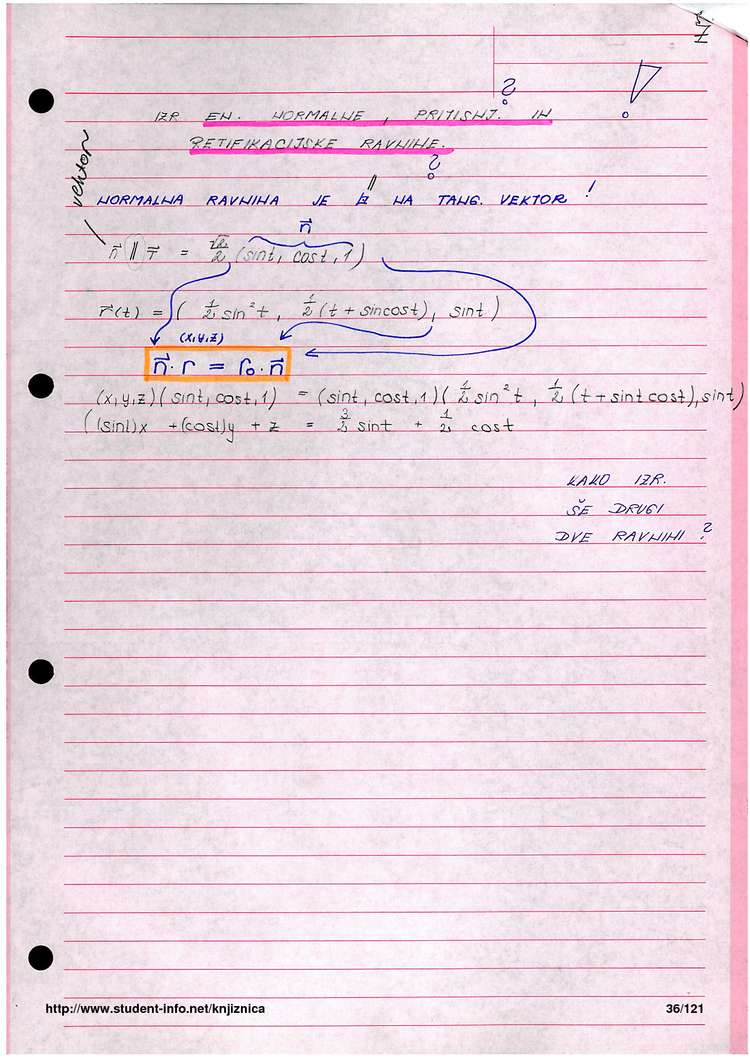 ?
!
IZR EN. NORMALNE, PRITISNJ. IN
RETIFIKACIJSKE RAVNINE.
?
vektor
NORMALNA RAVNINA JE || NA TANG. VEKTOR!
n⃗
n⃗ || T⃗ = √2/2 (sint, cost, 1)
r⃗(t) = ( 1/2 sin²t, 1/2 (t + sincost), sint )
(x,y,z)
n⃗ · r = r₀ · n⃗
(x,y,z)(sint, cost, 1) = (sint, cost, 1)( 1/2 sin²t, 1/2 (t + sint cost), sint)
((sint)x + (cost)y + z = 3/2 sint + 1/2 cost
KAKO IZR.
ŠE DRUGI
DVE RAVNINI?
http://www.student-info.net/knjiznica 36/121